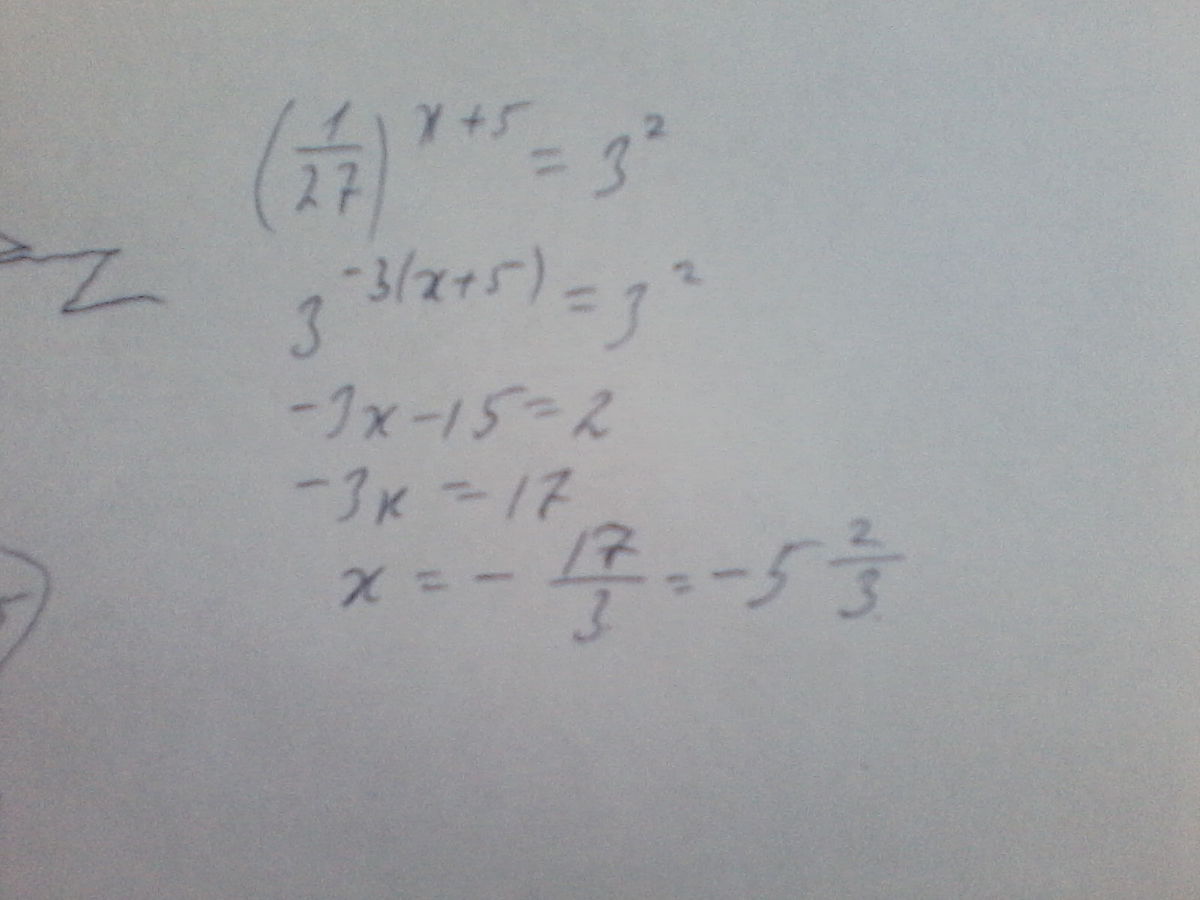 (1/27)^(x+5) = 3^2
3^(-3(x+5)) = 3^2
-3x-15=2
-3x=17
x = - 17/3 = -5 2/3